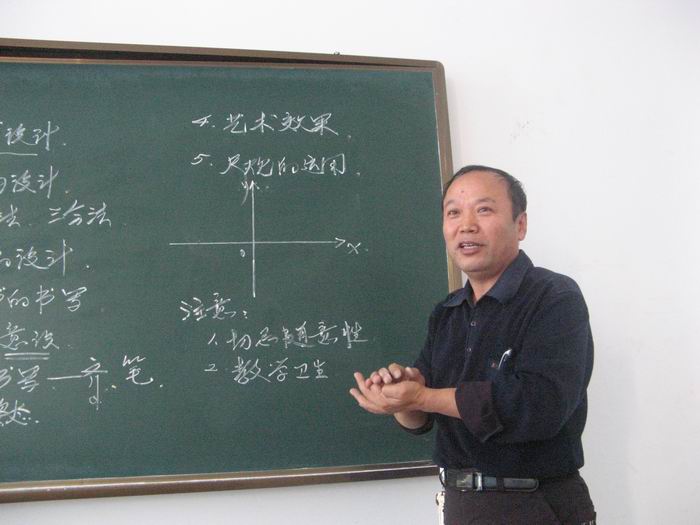 设计.
设计
法. 三分法
的设计.
的书写
意识.
书写 — 立、笔.
4. 艺术效果.
5. 尺规的运用.
y.
0
x.
注意:
1. 切忌随意性
2. 教学卫生